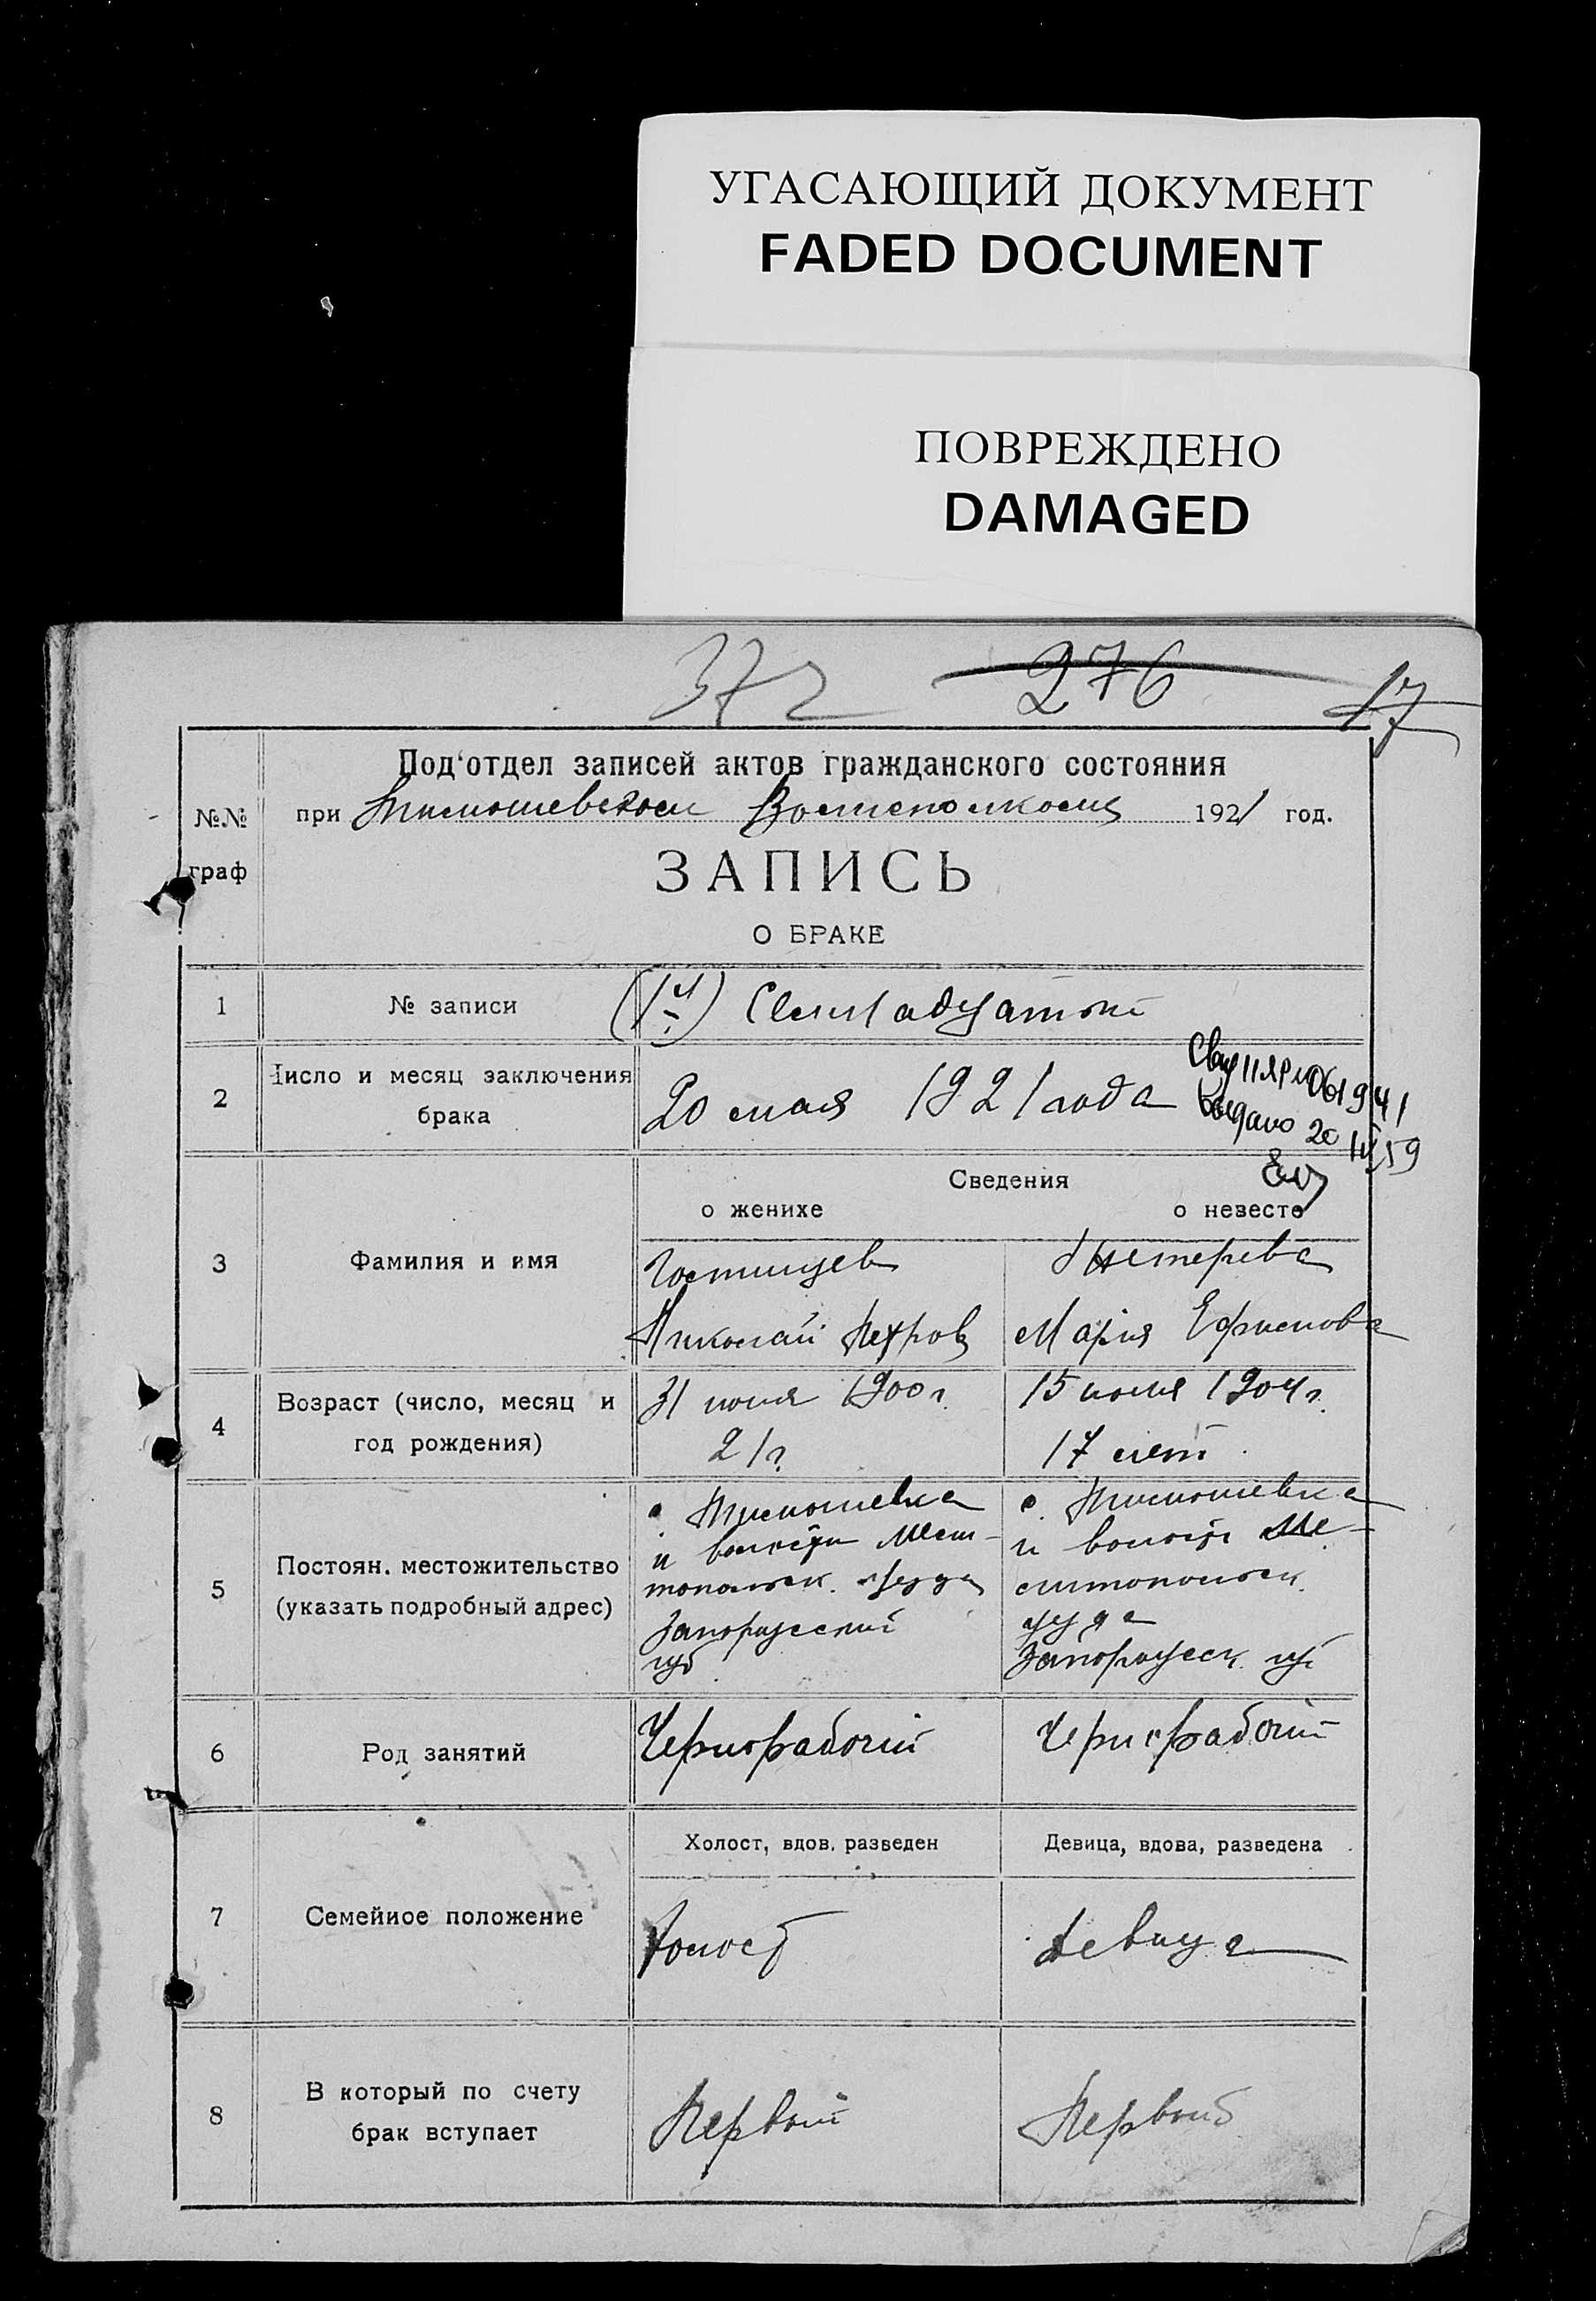 УГАСАЮЩИЙ ДОКУМЕНТ
FADED DOCUMENT
ПОВРЕЖДЕНО
DAMAGED
372 276 17
Под'отдел записей актов гражданского состояния
№№ граф
при Тимошевском Волисполкоме 1921 год.
ЗАПИСЬ
О БРАКЕ
1 № записи (17) Семнадцатый
2 Число и месяц заключения брака
20 мая 1921 года
061941
выдано 20 59
Сведения
о женихе о невесте
3 Фамилия и имя
Гостищев
Николай Петров Мария Ефимова
4 Возраст (число, месяц и год рождения)
31 1900 г. 15 1904 г.
21 г. 17 лет
5 Постоян. местожительство (указать подробный адрес)
с. Тимошевка с. Тимошевка
и волости Мели- и волости Ме-
топольск. уезда литопольск.
Запорожской уезда
губ Запорожск. губ
6 Род занятий Чернорабочий Чернорабочий
Холост, вдов, разведен Девица, вдова, разведена
7 Семейное положение Холост Девица
8 В который по счету брак вступает
Первый Первый